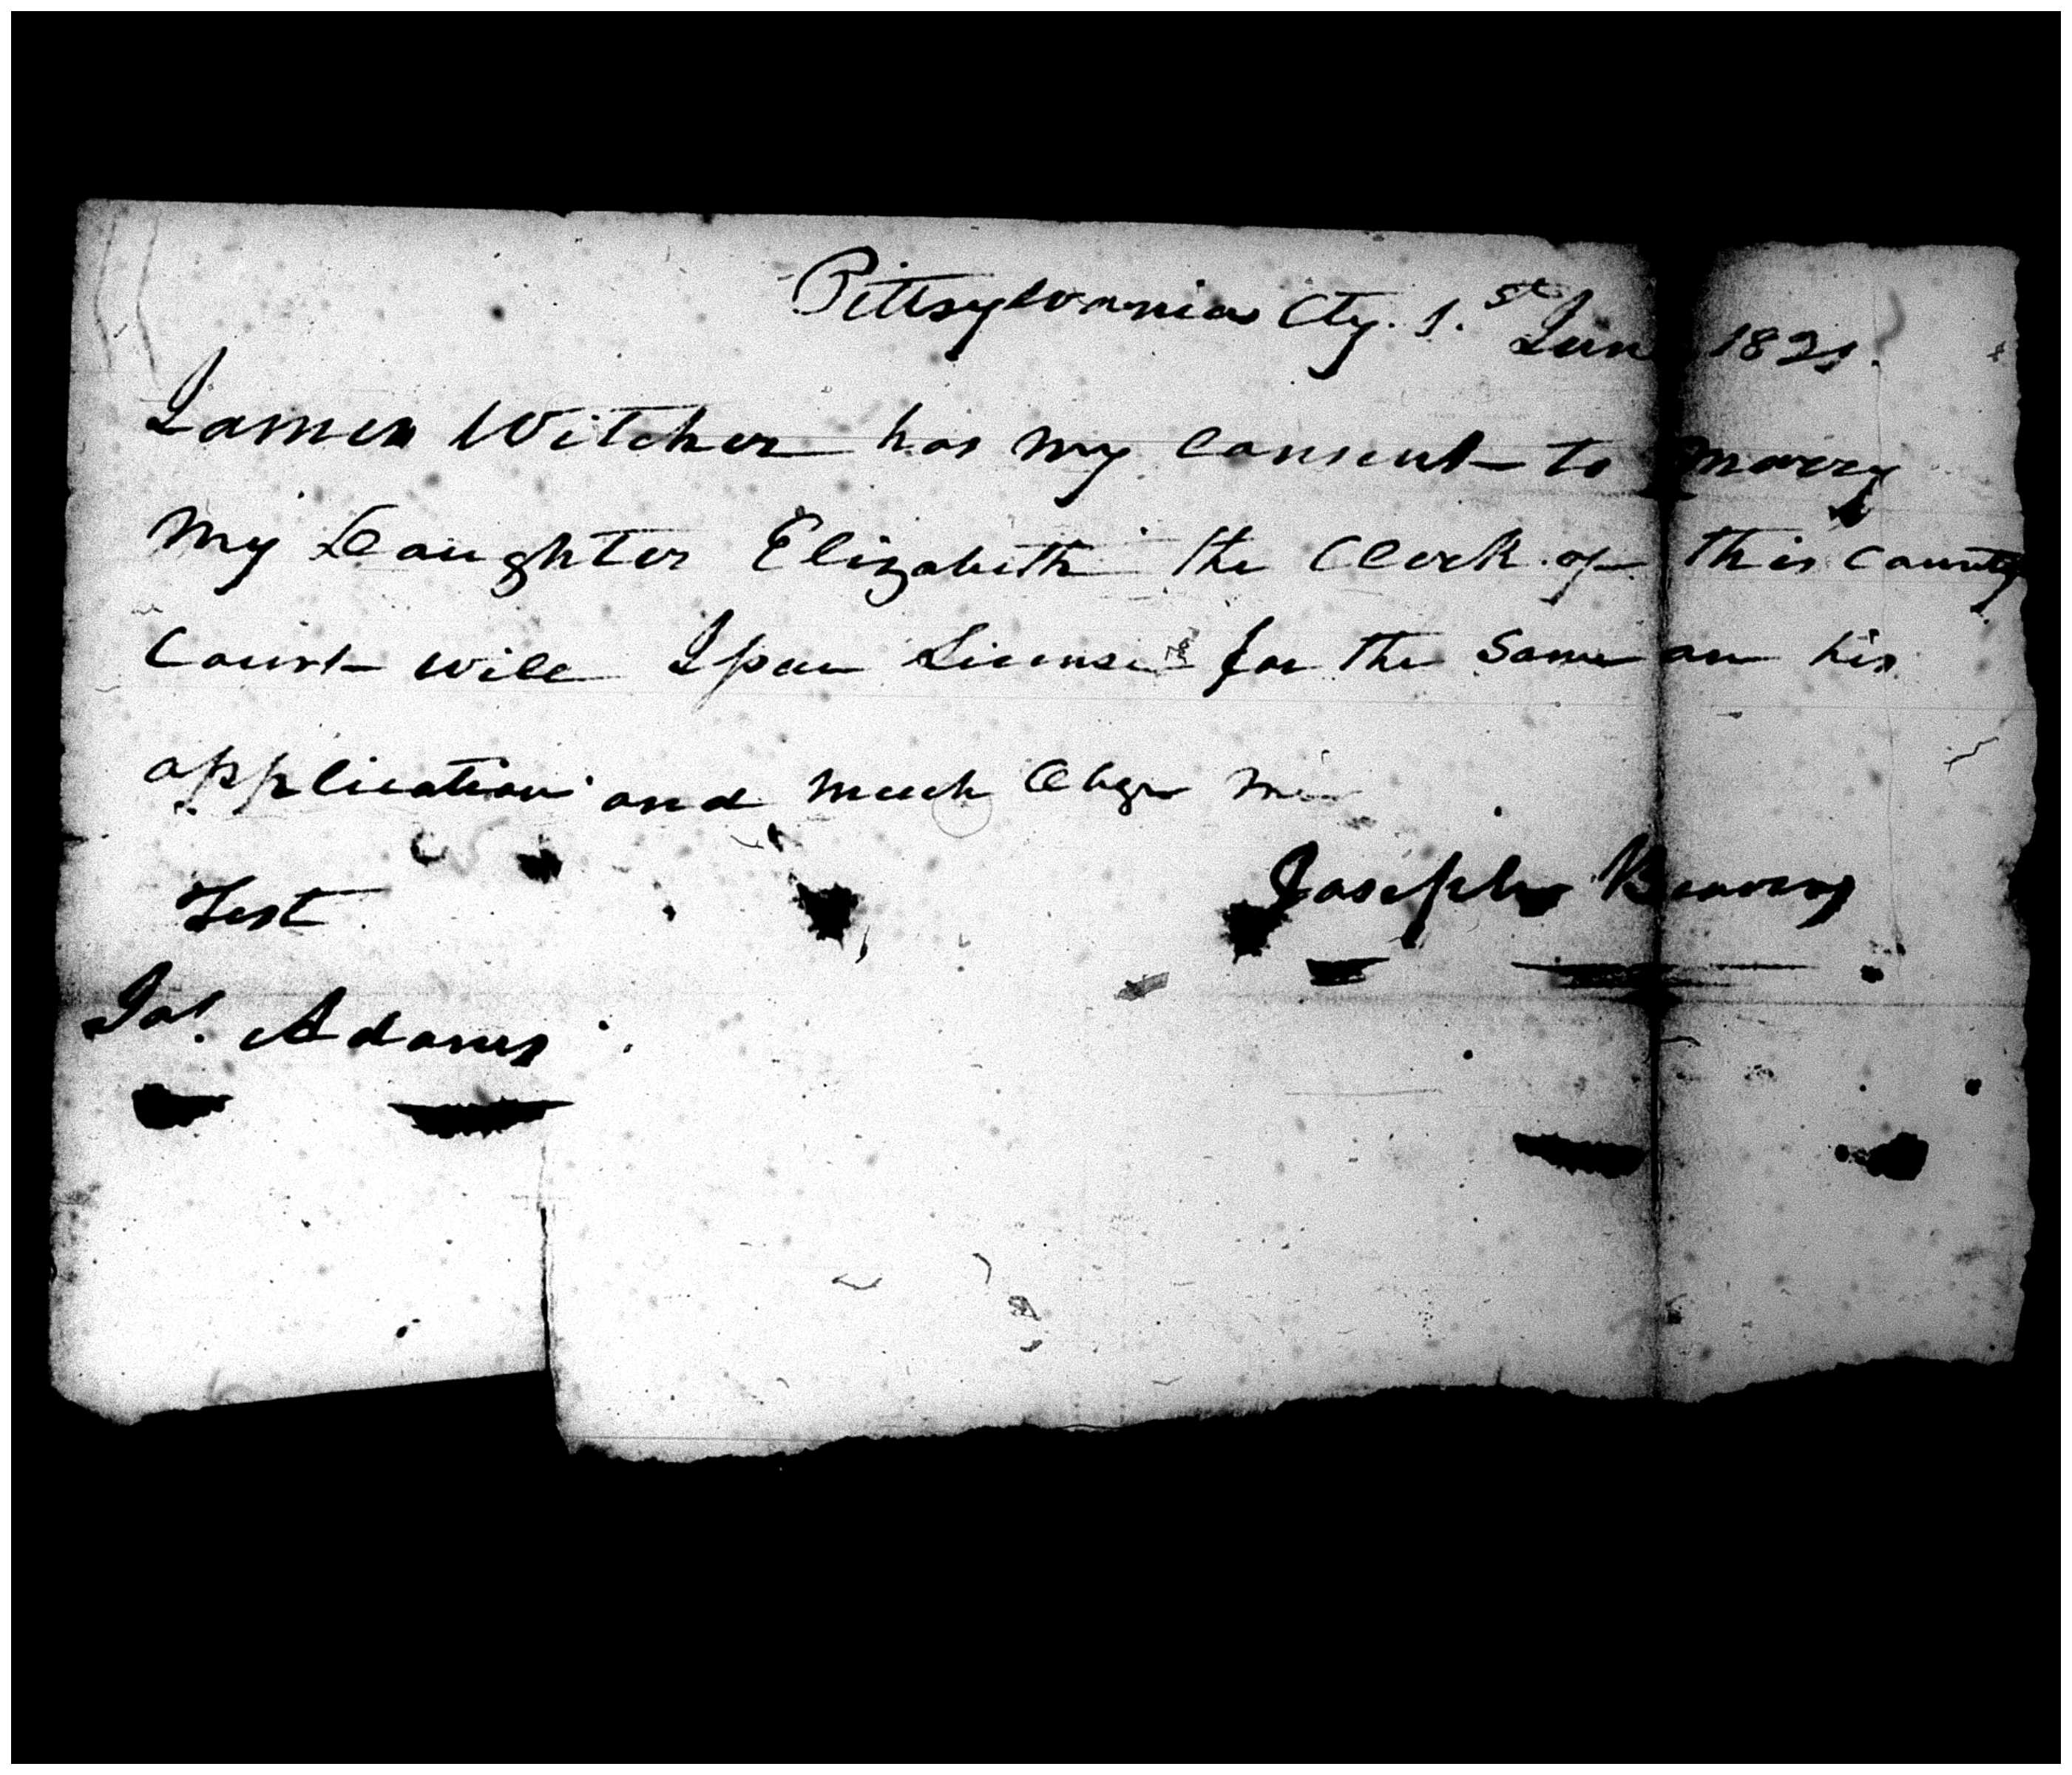 Pittsylvania Cty. 1.st June 1821.
James Witcher has my Consent to marry
My Daughter Elizabeth the Clerk of this County
Court will Issue License for the Same on his
application and much Oblge me
Joseph Beavers
Test
Jas. Adams